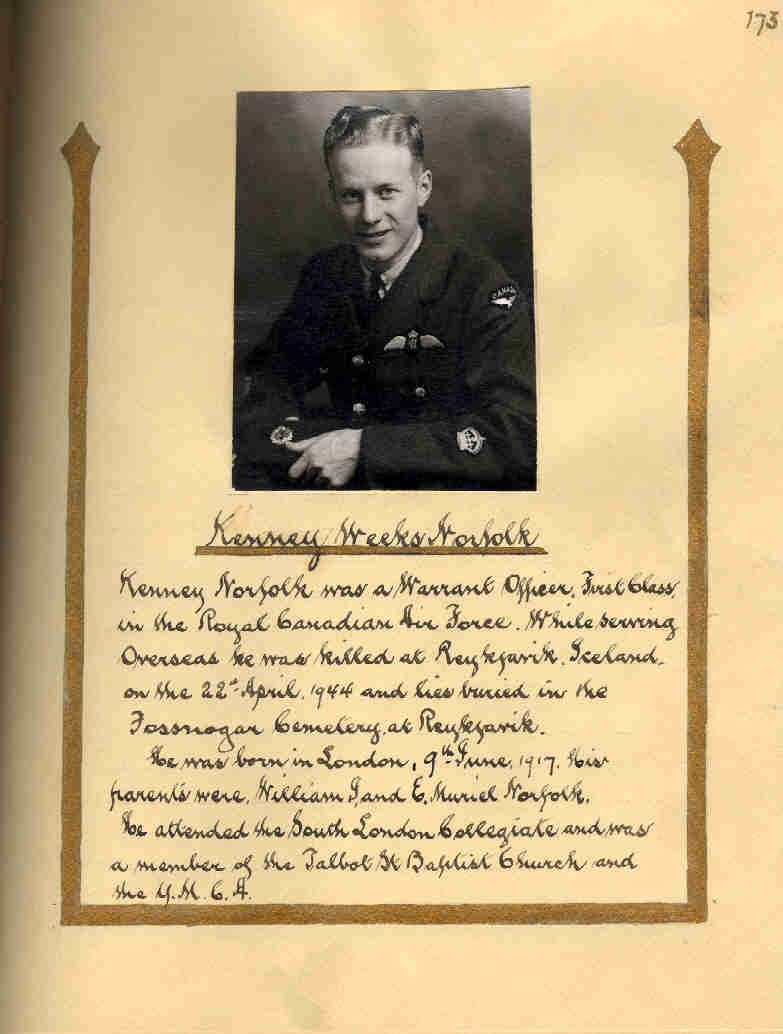 173
CANADA
Kenney Weeks Norfolk
Kenney Norfolk was a Warrant Officer, First Class,
in the Royal Canadian Air Force. While serving
Overseas he was killed at Reykjavik, Iceland,
on the 22nd April, 1944 and lies buried in the
Fossnogar Cemetery, at Reykjavik.
He was born in London, 9th June, 1917. His
parents were, William J, and E. Muriel Norfolk.
He attended the South London Collegiate and was
a member of the Talbot St Baptist Church and
the Y.M.C.A.